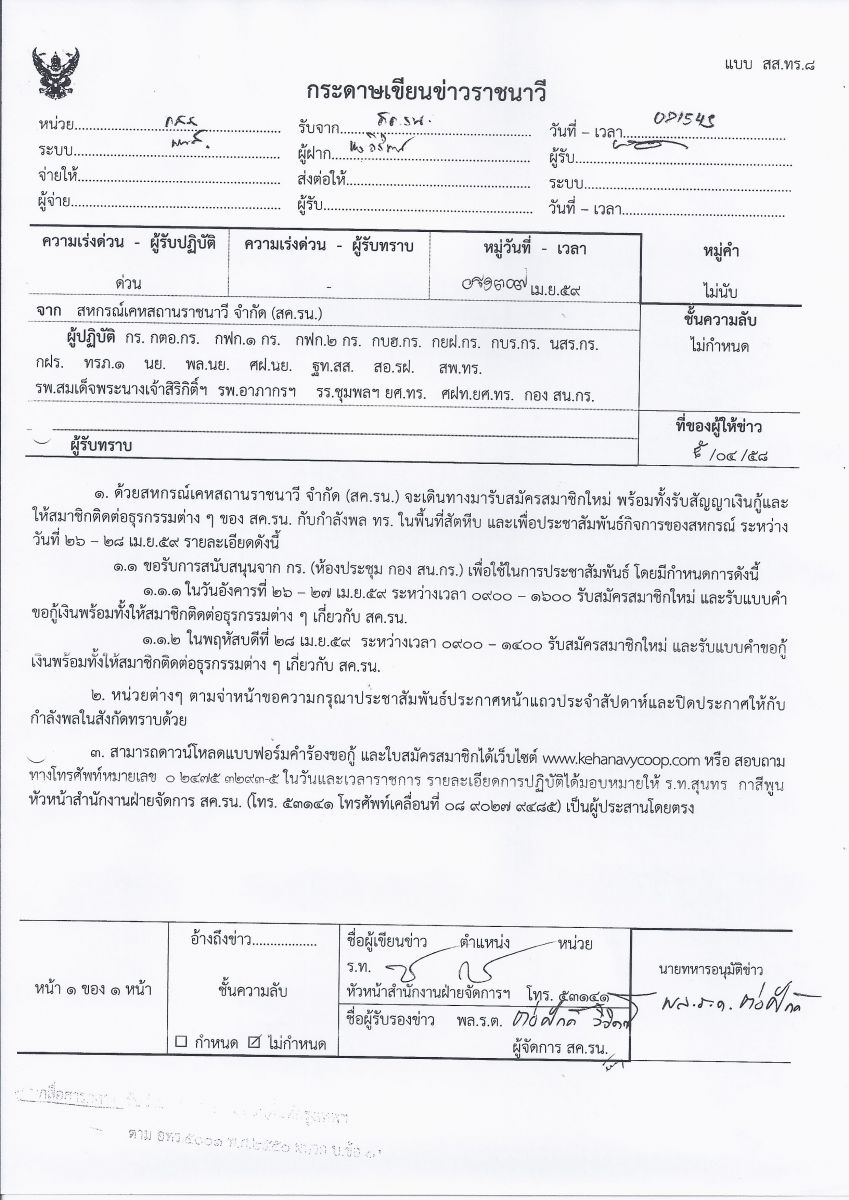 แบบ สส.ทร.๘
กระดาษเขียนข่าวราชนาวี
หน่วย รับจาก วันที่ – เวลา
ระบบ ผู้ฝาก ผู้รับ
จ่ายให้ ส่งต่อให้ ระบบ
ผู้จ่าย ผู้รับ วันที่ – เวลา
ความเร่งด่วน - ผู้รับปฏิบัติ ความเร่งด่วน - ผู้รับทราบ หมู่วันที่ - เวลา หมู่คำ
ด่วน - เม.ย.๕๙ ไม่นับ
จาก สหกรณ์เคหสถานราชนาวี จำกัด (สค.รน.) ชั้นความลับ
ผู้ปฏิบัติ กร. กตอ.กร. กฟก.๑ กร. กฟก.๒ กร. กบฮ.กร. กยฝ.กร. กบร.กร. นสร.กร. ไม่กำหนด
กฝร. ทรภ.๑ นย. พล.นย. ศฝ.นย. ฐท.สส. สอ.รฝ. สพ.ทร.
รพ.สมเด็จพระนางเจ้าสิริกิติ์ฯ รพ.อาภากรฯ รร.ชุมพลฯ ยศ.ทร. ศฝท.ยศ.ทร. กอง สน.กร.
ที่ของผู้ให้ข่าว
ผู้รับทราบ /๐๔ /๕๘
๑. ด้วยสหกรณ์เคหสถานราชนาวี จำกัด (สค.รน.) จะเดินทางมารับสมัครสมาชิกใหม่ พร้อมทั้งรับสัญญาเงินกู้และ
ให้สมาชิกติดต่อธุรกรรมต่าง ๆ ของ สค.รน. กับกำลังพล ทร. ในพื้นที่สัตหีบ และเพื่อประชาสัมพันธ์กิจการของสหกรณ์ ระหว่าง
วันที่ ๒๖ – ๒๘ เม.ย.๕๙ รายละเอียดดังนี้
๑.๑ ขอรับการสนับสนุนจาก กร. (ห้องประชุม กอง สน.กร.) เพื่อใช้ในการประชาสัมพันธ์ โดยมีกำหนดการดังนี้
๑.๑.๑ ในวันอังคารที่ ๒๖ – ๒๗ เม.ย.๕๙ ระหว่างเวลา ๐๙๐๐ – ๑๖๐๐ รับสมัครสมาชิกใหม่ และรับแบบคำ
ขอกู้เงินพร้อมทั้งให้สมาชิกติดต่อธุรกรรมต่าง ๆ เกี่ยวกับ สค.รน.
๑.๑.๒ ในพฤหัสบดีที่ ๒๘ เม.ย.๕๙ ระหว่างเวลา ๐๙๐๐ – ๑๔๐๐ รับสมัครสมาชิกใหม่ และรับแบบคำขอกู้
เงินพร้อมทั้งให้สมาชิกติดต่อธุรกรรมต่าง ๆ เกี่ยวกับ สค.รน.
๒. หน่วยต่างๆ ตามจ่าหน้าขอความกรุณาประชาสัมพันธ์ประกาศหน้าแถวประจำสัปดาห์และปิดประกาศให้กับ
กำลังพลในสังกัดทราบด้วย
๓. สามารถดาวน์โหลดแบบฟอร์มคำร้องขอกู้ และใบสมัครสมาชิกได้เว็บไซต์ www.kehanavycoop.com หรือ สอบถาม
ทางโทรศัพท์หมายเลข ๐ ๒๔๗๕ ๓๒๙๓-๕ ในวันและเวลาราชการ รายละเอียดการปฏิบัติได้มอบหมายให้ ร.ท.สุนทร กาสีพูน
หัวหน้าสำนักงานฝ่ายจัดการ สค.รน. (โทร. ๕๓๑๔๑ โทรศัพท์เคลื่อนที่ ๐๘ ๙๐๒๗ ๙๔๘๕) เป็นผู้ประสานโดยตรง
อ้างถึงข่าว ชื่อผู้เขียนข่าว ตำแหน่ง หน่วย
ร.ท. นายทหารอนุมัติข่าว
หน้า ๑ ของ ๑ หน้า ชั้นความลับ หัวหน้าสำนักงานฝ่ายจัดการฯ โทร. ๕๓๑๔๑
ชื่อผู้รับรองข่าว พล.ร.ต.
กำหนด ไม่กำหนด ผู้จัดการ สค.รน.